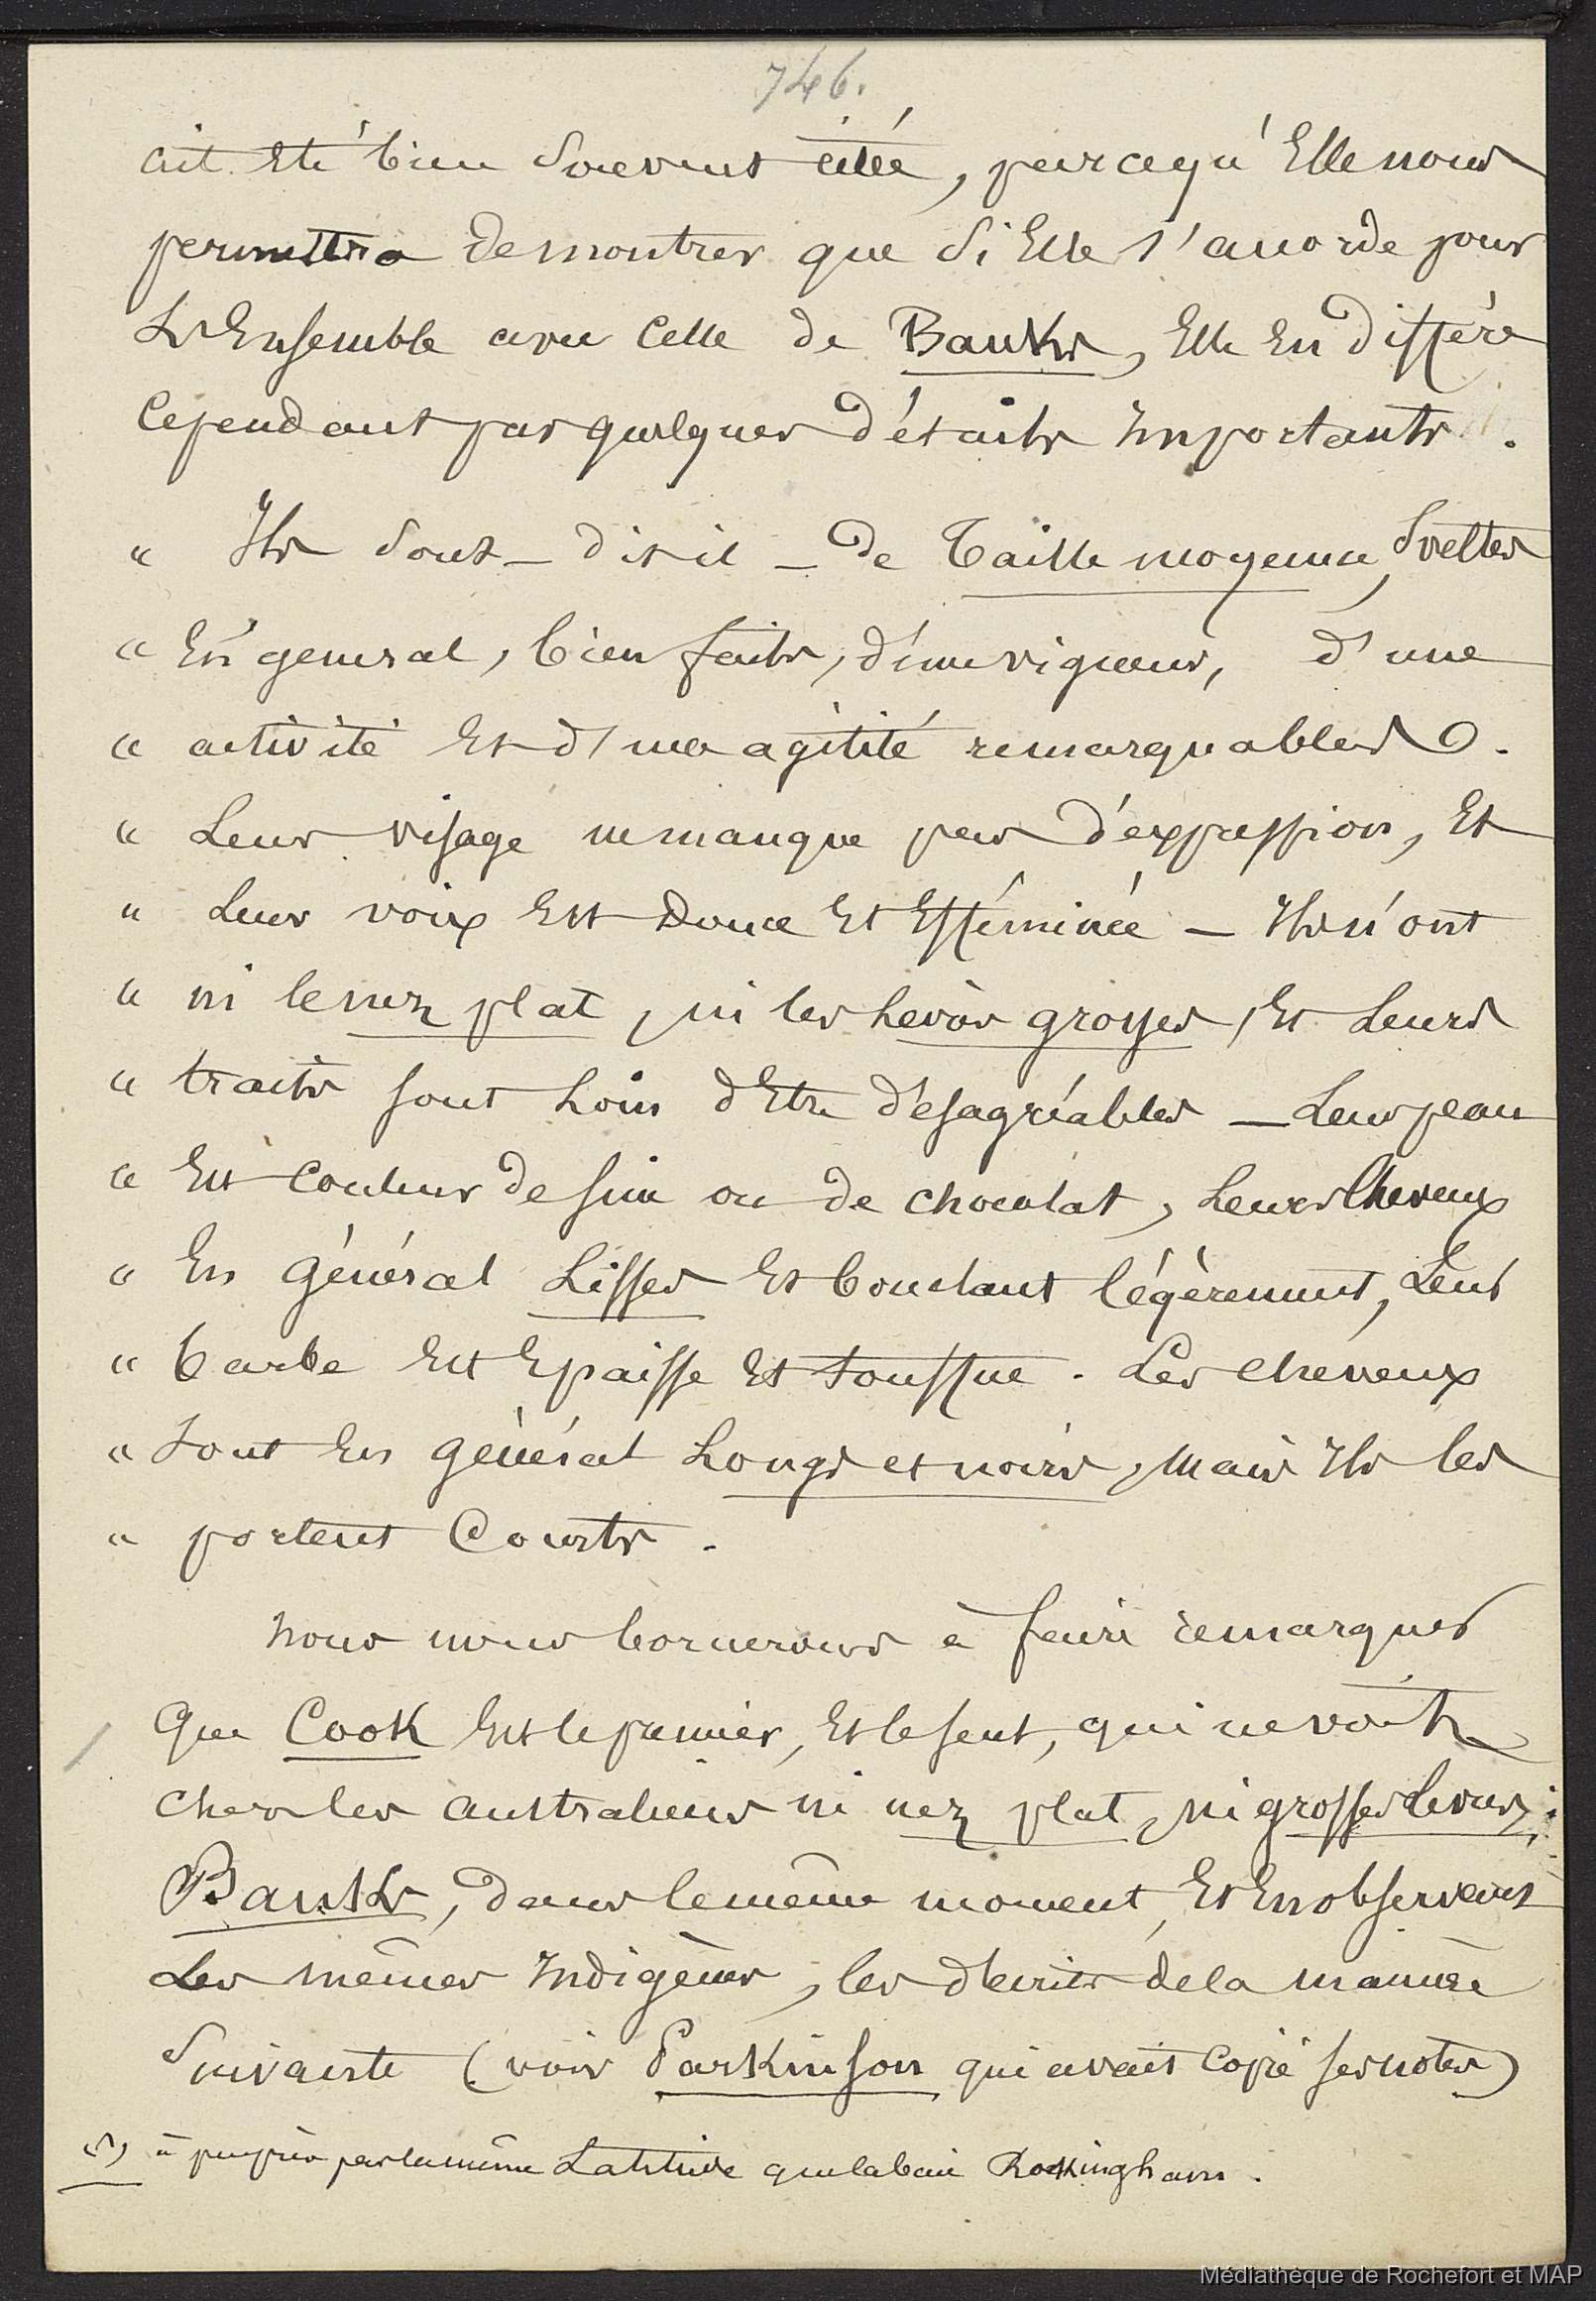 746.
ait été bien souvent citée, parcequ'Elle nous
permettra de montrer que si Elle s'accorde pour
L'Ensemble avec Celle de Banks, Elle En diffère
Cependant par quelques détails Importants.
" Ils sont – dit il – de Taille moyenne, Sveltes
" En général, bien faits, d'une vigueur, d'une
" activité Et d'une agilité remarquables.
" Leur visage ne manque pas d'expression, Et
" Leur voix Est Douce Et Efféminée – Ils n'ont
" ni le nez plat, ni les Levres grosses, Et Leurs
" traits sont Loin d'Etre désagréables – Leur peau
" Est Couleur de suie ou de chocolat, Leurs Cheveux
" En général Lisses Et bouclant légèrement, Leur
" barbe Est Epaisse Et touffue. Les cheveux
" sont En général Longs et noirs, Mais Ils les
" portent Courts.
Nous nous bornerons à faire remarquer
Que Cook Est le premier, Et le seul, qui ne voit
chez les australiens ni nez plat, ni grosses Levres;
Banks, dans le même moment, Et En observant
Les mêmes Indigènes, les décrits de la manière
Suivante (voir Parkinson qui avait Copié ses notes)
(1) à peu près par la même Latitude que la baie Rockingham.
Médiathèque de Rochefort et MAP